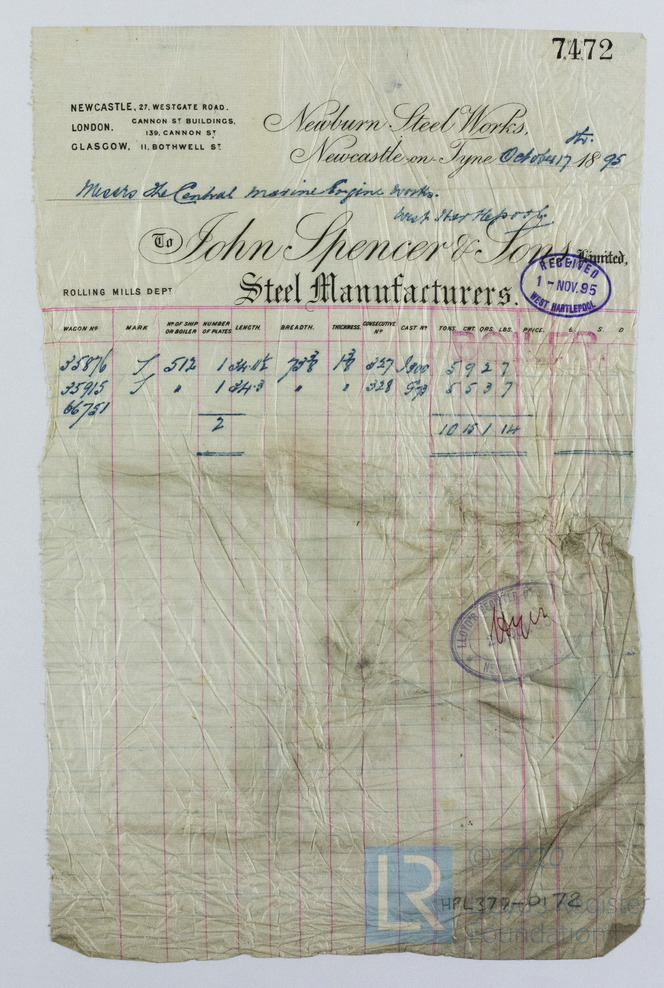 7472
NEWCASTLE, 27, WESTGATE ROAD.
LONDON. CANNON ST BUILDINGS,
139, CANNON ST
GLASGOW, 11, BOTHWELL ST
Newburn Steel Works,
Newcastle-on-Tyne October 17th 1895
Messrs The Central Marine Engine Works.
West Hartlepool.
To John Spencer & Sons Limited,
ROLLING MILLS DEPT
Steel Manufacturers.
RECEIVED
1-NOV.95
WEST HARTLEPOOL
BOILER.
WAGON No MARK No OF SHIP OR BOILER NUMBER OF PLATES LENGTH. BREADTH. THICKNESS. CONSECUTIVE No CAST No TONS. CWT. QRS. LBS. PRICE. £ S. D
35876 512 1 327 5 9 2 7
35915 " 1 34.3 " " 328 5 5 3 7
66751
2 10 15 1 14
LLOYD'S REGISTER
LR
© 2020
HPL377-0172
Lloyd's Register
Foundation